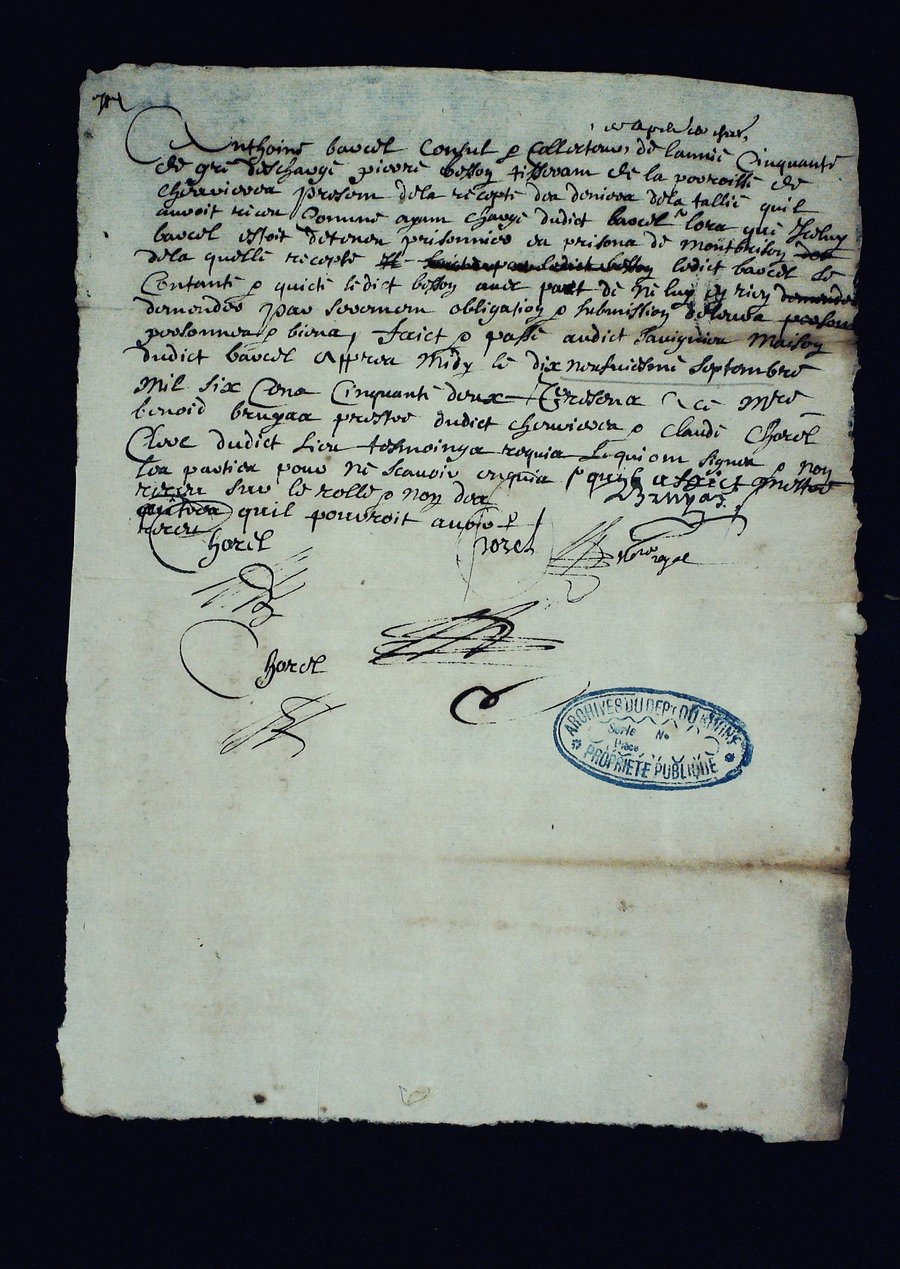 Anthoine barcel Consul & Collecteur de lannee Cinquante
de gre descharge pierre besson tisseram de la parroisse de
cherviever presem dela recepte des deniers dela tallie quil
avoit receu Comme ayam charge dudict barcel lors que Iceluy
barcel estoit detenu prisonnier en prisons de Montbrison
dela quelle recepte ledict barcel Se
Contante & quicte ledict besson avec pact de ne luy en rien
demander par serment obligation & submission
personnes & biens, faict & passe audict Savignieu Maison
dudict barcel Appres Midy le dix neufviesme Septembre
Mil six Cens Cinquante deux presens a ce Mre
benoid bruyas prestre dudict cherviever & Claude Chorel
Clerc dudict lieu tesmoings requis qui ont signes & non
les parties pour ne scavoir enquis & quil a faict mettre
receu sur le rolle & non des Bruyas
quil pourroit avoir
receu
Chorel
Chorel
ARCHIVES DU DEPT DU RHONE
Serie No
Piece
PROPRIETE PUBLIQUE